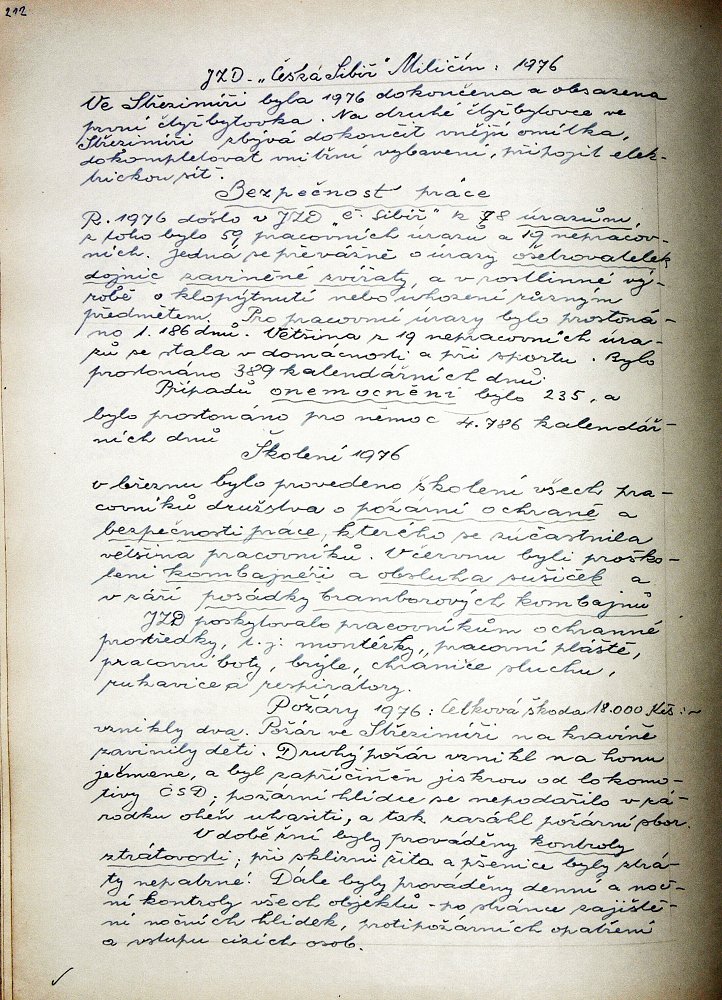 212
JZD - „Česká Sibiř" Miličín : 1976
Ve Střezimíři byla 1976 dokončena a obsazena
první čtyřbytovka. Na druhé čtyřbytovce ve
Střezimíři zbývá dokončit vnější omítka,
dokompletovat vnitřní vybavení, připojit elek-
trickou síť.
Bezpečnost práce
R. 1976 došlo v JZD „Č. Sibiř" k 78 úrazům,
z toho bylo 59 pracovních úrazů a 19 nepracov-
ních. Jedná se převážně o úrazy ošetřovatelek
dojnic zaviněné zvířaty, a v rostlinné vý-
robě o klopýtnutí nebo uhození různým
předmětem. Pro pracovní úrazy bylo prostoná-
no 1.186 dnů. Většina z 19 nepracovních úra-
zů se stala v domácnosti a při sportu. Bylo
prostonáno 389 kalendářních dnů.
Případů onemocnění bylo 235, a
bylo prostonáno pro nemoc 4.786 kalendář-
ních dnů
Školení 1976
v březnu bylo provedeno školení všech pra-
covníků družstva o požární ochraně a
bezpečnosti práce, kterého se zúčastnila
většina pracovníků. V červnu byli proško-
leni kombajnéři a obsluha sušiček a
v září posádky bramborových kombajnů
JZD poskytovalo pracovníkům ochranné
prostředky, t.j: montérky, pracovní pláště,
pracovní boty, brýle, chrániče sluchu,
rukavice a respirátory.
Požáry 1976 : Celková škoda 18.000 Kčs :-
vznikly dva. Požár ve Střezimíři na kravíně
zavinily děti. Druhý požár vznikl na honu
ječmene, a byl zapříčiněn jiskrou od lokomo-
tivy ČSD; požární hlídce se nepodařilo v zá-
rodku oheň uhasiti, a tak zasáhl požární sbor.
V době žní byly prováděny kontroly
ztrátovosti; při sklizni žita a pšenice byly ztrá-
ty nepatrné! Dále byly prováděny denní a noč-
ní kontroly všech objektů - po stránce zajiště-
ní nočních hlídek, protipožárních opatření
a vstupu cizích osob.